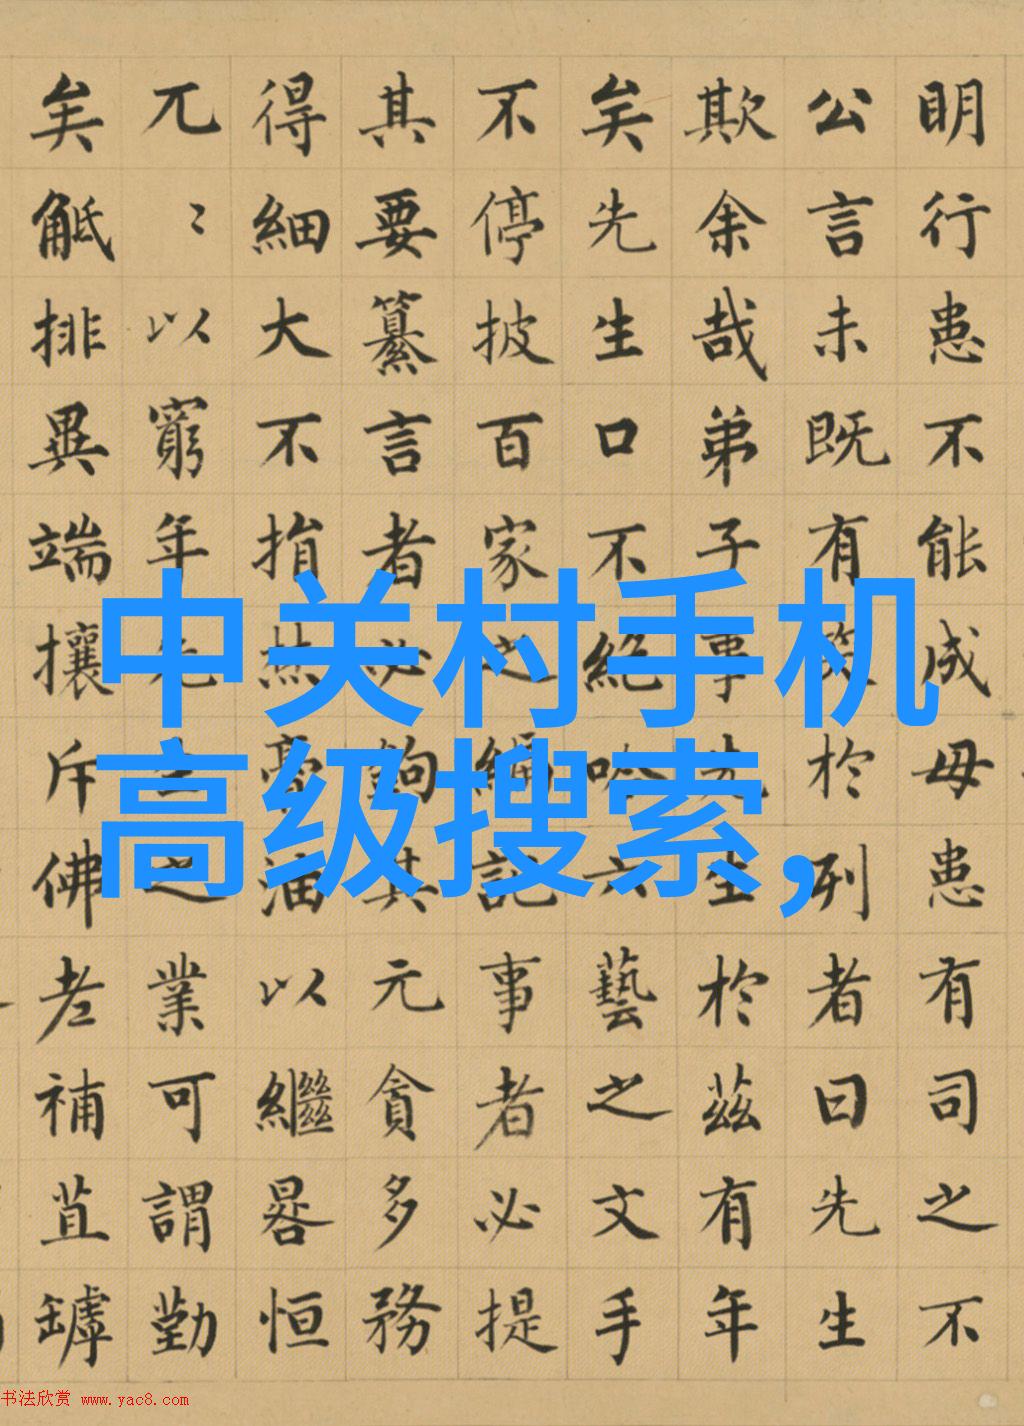 明行患不能成毋患有司之不
公言未既有笑於列者曰先生
欺余哉弟子事先生於茲有年
矣先生口不絕吟六藝之文手
不停披百家之編記事者必提
其要纂言者必鉤其元貪多務
得細大不捐焚膏油以繼晷恒
兀〻以窮年先生之業可謂勤
矣觝排異端攘斥佛老補苴罅
中关村手机
高级搜索,
书法欣赏 www.yac8.com